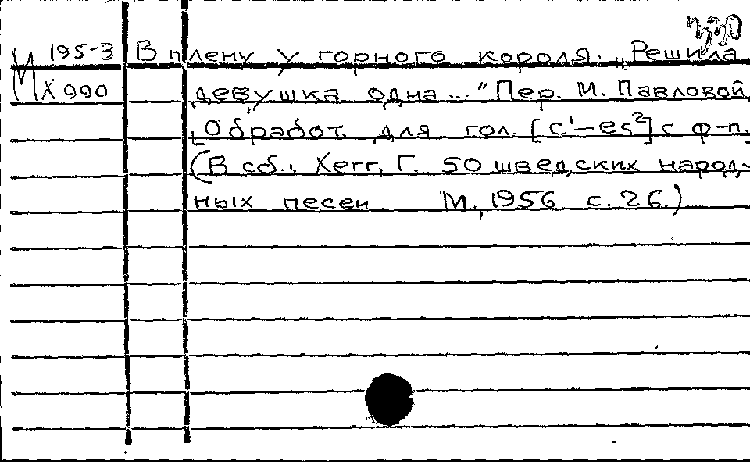 330
М 195-3 В плену у горного короля. „Решила
X 990 девушка одна..." Пер. М. Павловой.
[Обработ. для гол. [c¹-es²] с ф-п.]
(В сб.: Хегг, Г. 50 шведских народ-
ных песен М., 1956 с. 26.)